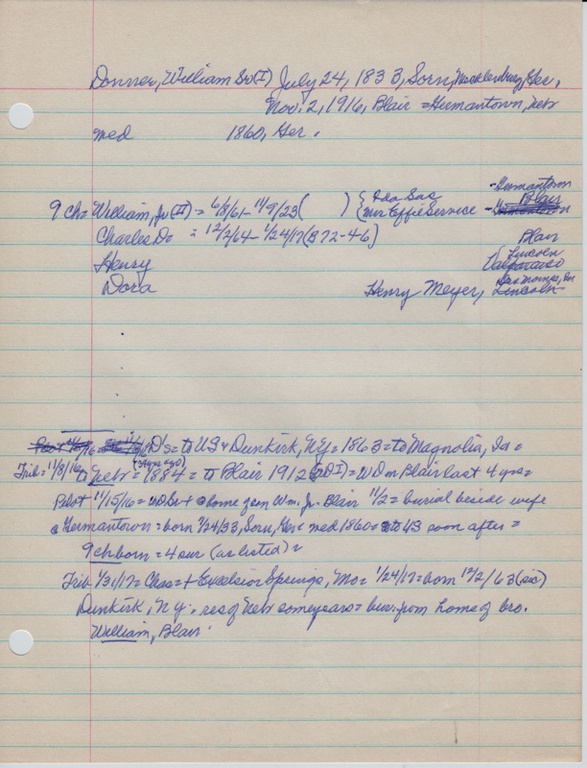 Donner, William Sr (I) July 24, 1833, Sorn, Mecklenburg, Ger.
Nov. 2, 1916, Blair = Hermantown, Nebr
med 1860, Ger.
- Hermantown
9 Ch = William, Jr (II) = 6/8/61 - 11/9/23 ( ) { Ida Sas Blair
Mrs Effie Service -
Charles D = 12/2/64 - 1/24/17 (B72-46) Blair
Henry Lincoln
Valparaiso
Dora Henry Meyer, Des Moines,
Lincoln
D's = to US & Dunkirk, N.Y. = 1863 = to Magnolia, Ia =
Trib: 11/8/16 to Nebr = 1884 = to Blair 1912 = Blair last 4 yrs =
Pilot 11/15/16 = home of son Wm. Jr. Blair 11/2 = burial beside wife
@ Hermantown = born 7/24/33, Sorn, Ger = med 1860 = to US soon after =
9 ch born = 4 sur (as listed) =
Trib. 1/31/17 = Chas = + Excelsior Springs, Mo = 1/24/17 = born 12/2/63 (sic)
Dunkirk, N.Y. res of Nebr some years = bur. from home of bro.
William, Blair.